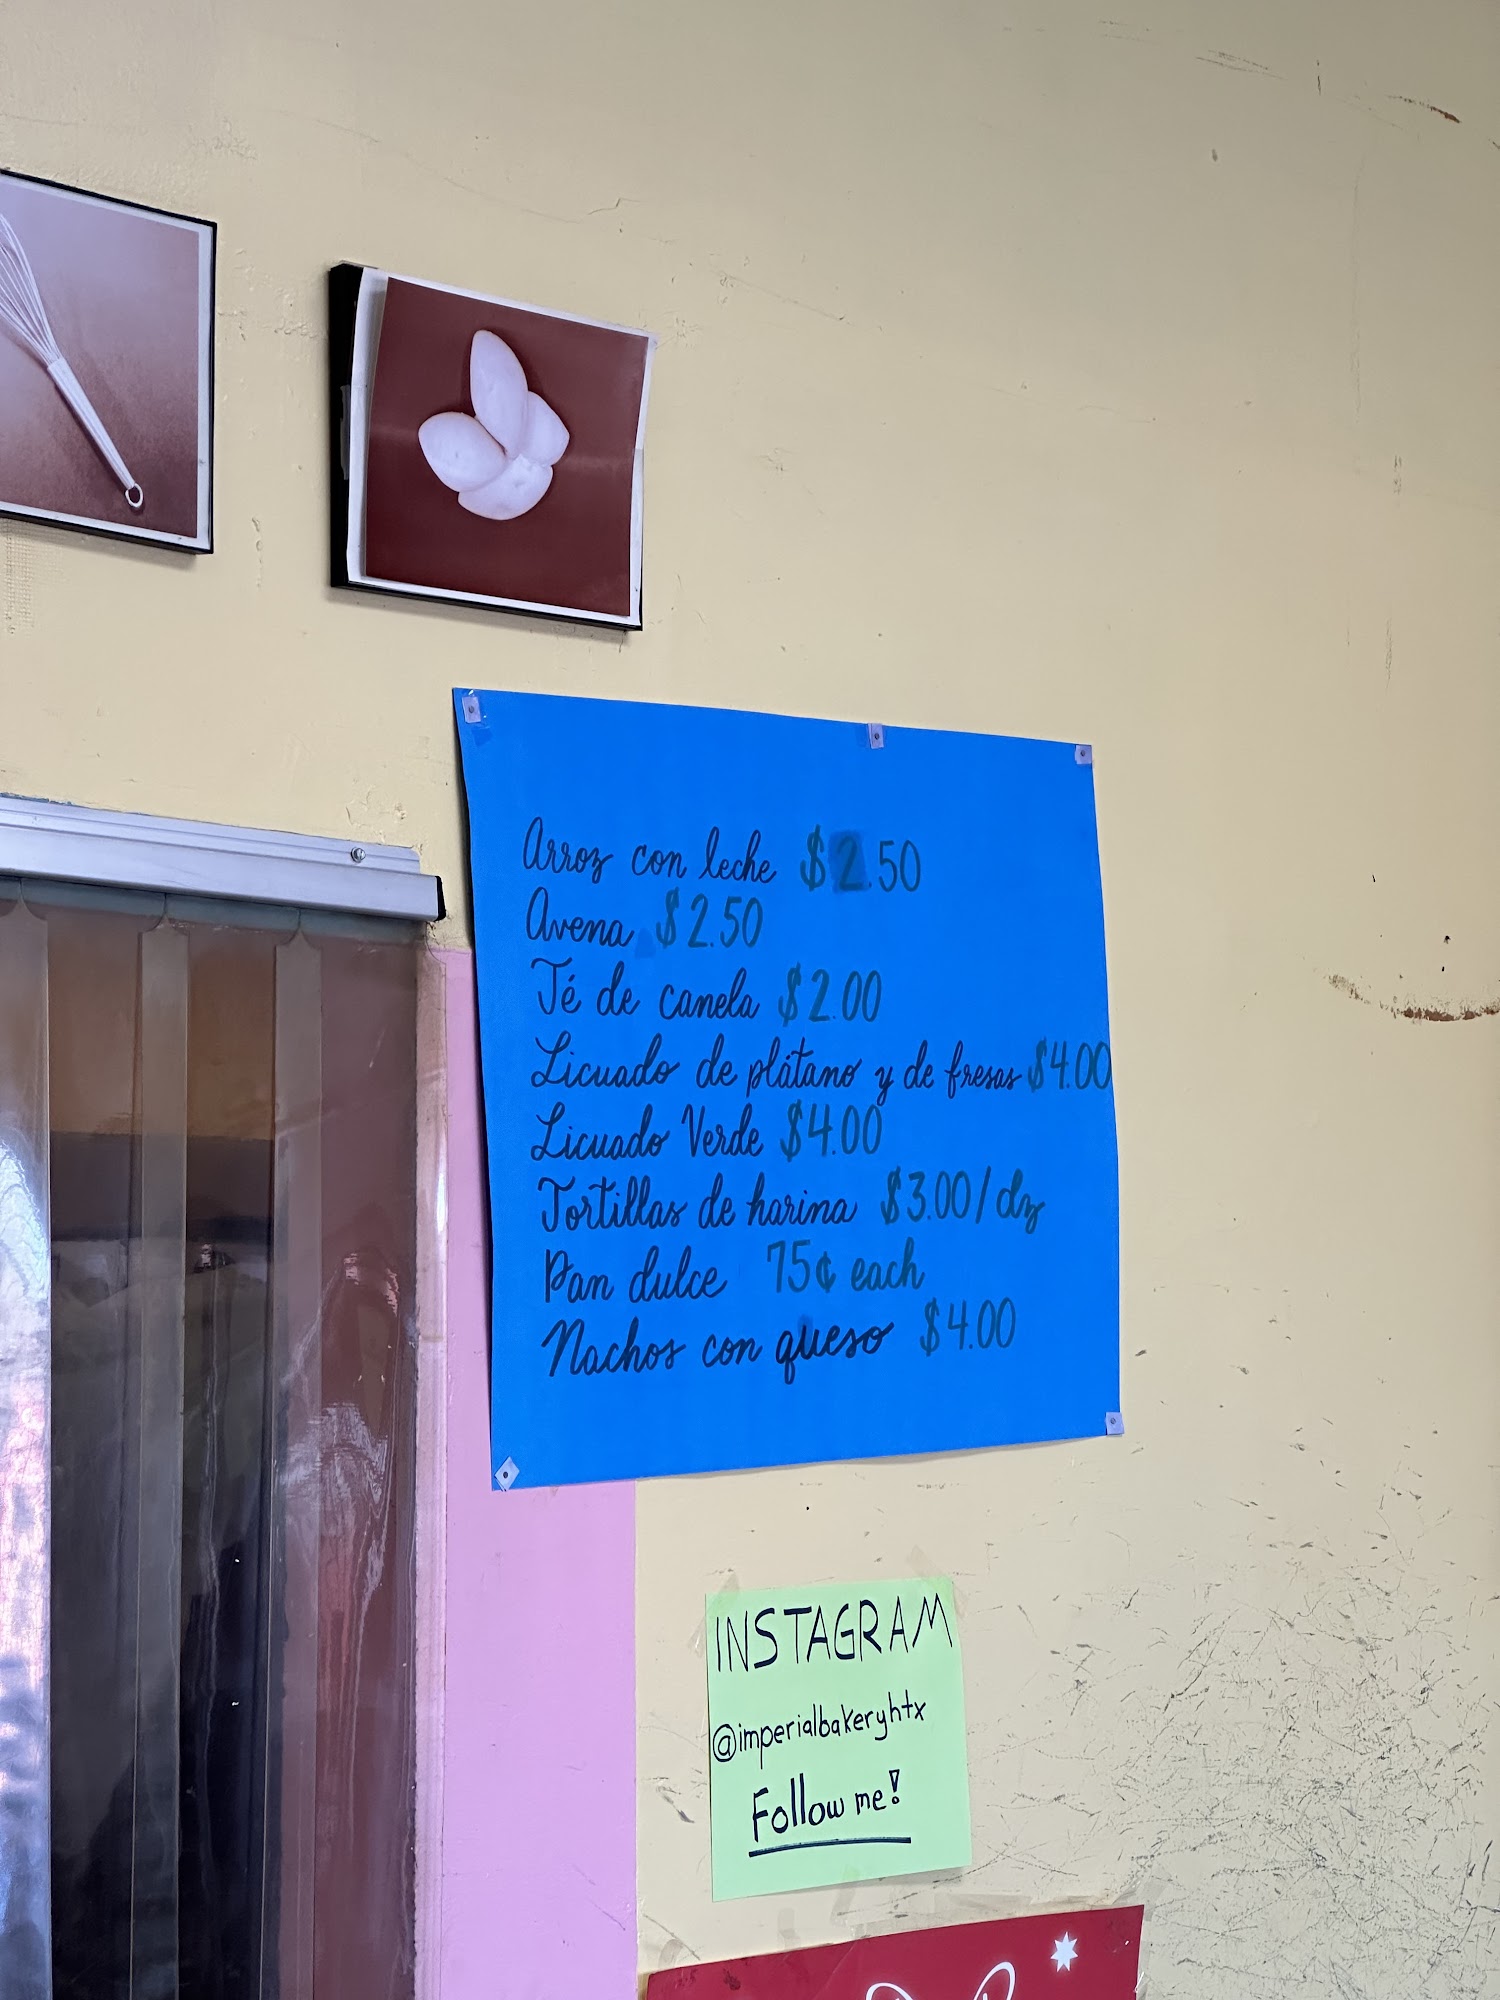 Arroz con leche $2.50
Avena $2.50
Té de canela $2.00
Licuado de plátano y de fresas $4.00
Licuado Verde $4.00
Tortillas de harina $3.00/dz
Pan dulce 75¢ each
Nachos con queso $4.00
INSTAGRAM
@imperialbakeryhtx
Follow me!